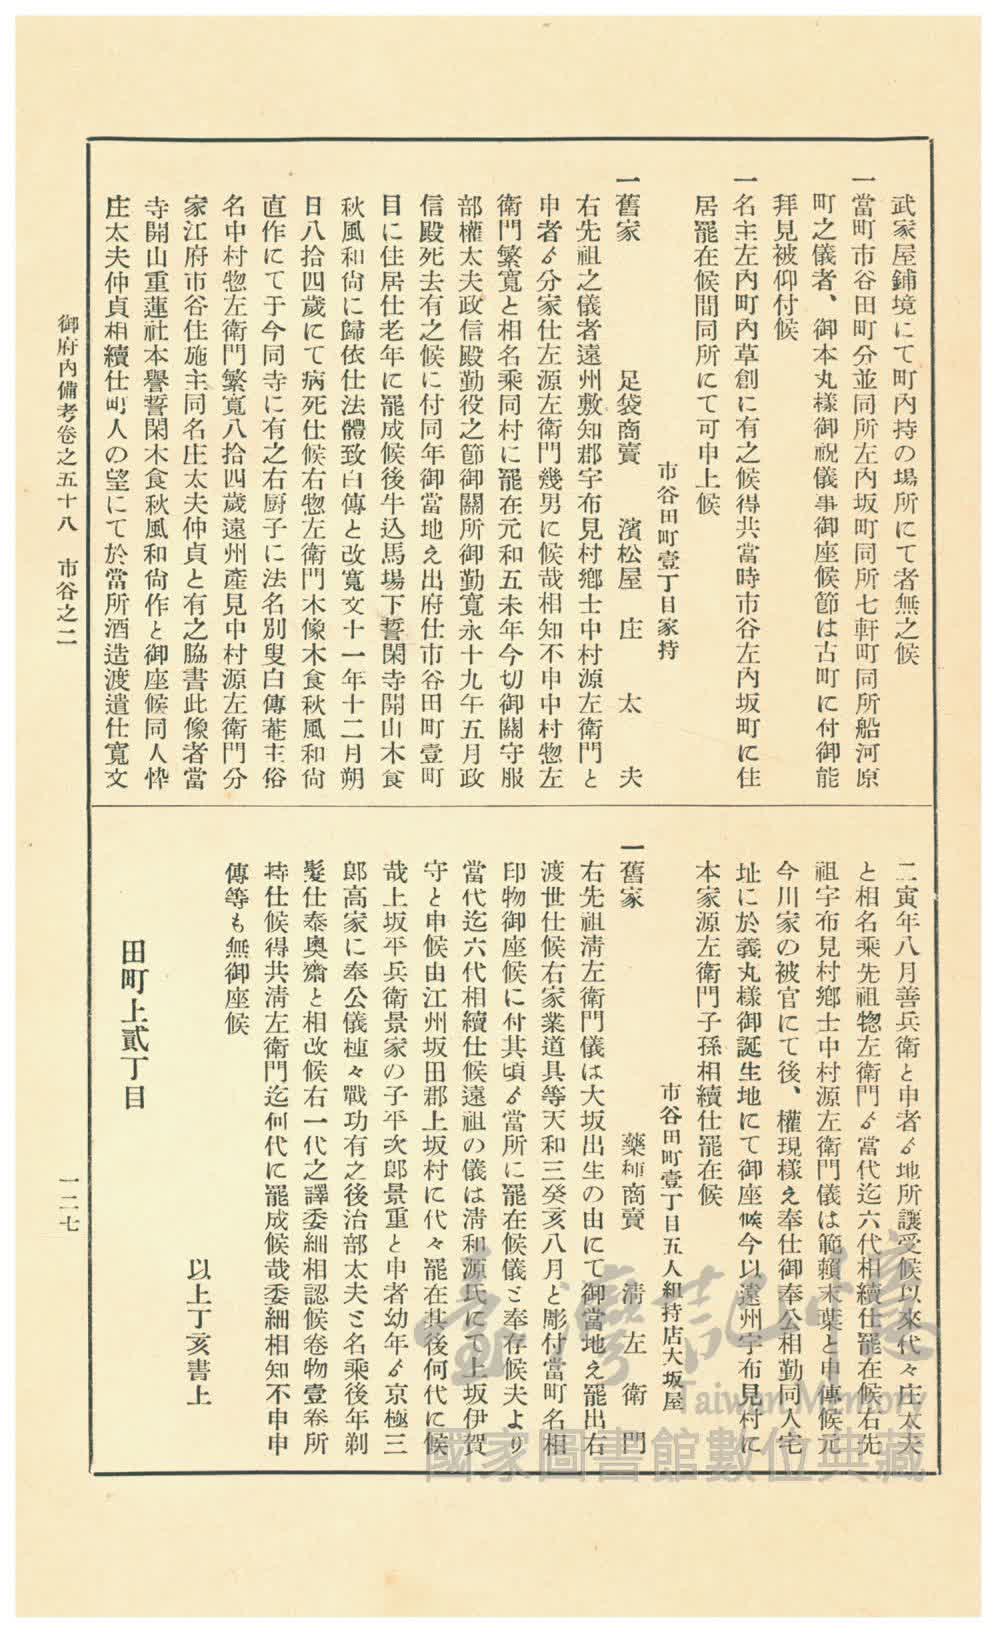 武家屋鋪境にて町內持の場所にて者無之候
一當町市谷田町分並同所左內坂町同所七軒町同所船河原
町之儀者、御本丸樣御祝儀事御座候節は古町に付御能
拜見被仰付候
一名主左內町內草創に有之候得共當時市谷左內坂町に住
居罷在候間同所にて可申上候
市谷田町壹丁目家持
一舊家 足袋商賣 濱松屋 庄太夫
右先祖之儀者遠州敷知郡宇布見村鄕士中村源左衞門と
申者ゟ分家仕左源左衞門幾男に候哉相知不申中村惣左
衞門繁寬と相名乘同村に罷在元和五未年今切御關守服
部權太夫政信殿勤役之節御關所御勤寬永十九午五月政
信殿死去有之候に付同年御當地え出府仕市谷田町壹町
目に住居仕老年に罷成候後牛込馬場下誓閑寺開山木食
秋風和尙に歸依仕法體致白傳と改寬文十一年十二月朔
日八拾四歲にて病死仕候右惣左衞門木像木食秋風和尙
直作にて于今同寺に有之右厨子に法名別叟白傳菴主俗
名中村惣左衞門繁寬八拾四歲遠州產見中村源左衞門分
家江府市谷住施主同名庄太夫仲貞と有之脇書此像者當
寺開山重蓮社本譽誓閑木食秋風和尙作と御座候同人忰
庄太夫仲貞相續仕町人の望にて於當所酒造渡遣仕寬文
二寅年八月善兵衞と申者ゟ地所讓受候以來代々庄太夫
と相名乘先祖惣左衞門ゟ當代迄六代相續仕罷在候右先
祖宇布見村鄕士中村源左衞門儀は範賴末葉と申傳候元
今川家の被官にて後、權現樣え奉仕御奉公相勤同人宅
址に於義丸樣御誕生地にて御座候今以遠州宇布見村に
本家源左衞門子孫相續仕罷在候
市谷田町壹丁目五人組持店大坂屋
一舊家 藥種商賣 淸左衞門
右先祖淸左衞門儀は大坂出生の由にて御當地え罷出右
渡世仕候右家業道具等天和三癸亥八月と彫付當町名相
印物御座候に付其頃ゟ當所に罷在候儀と奉存候夫より
當代迄六代相續仕候遠祖の儀は淸和源氏にて上坂伊賀
守と申候由江州坂田郡上坂村に代々罷在其後何代に候
哉上坂平兵衞景家の子平次郞景重と申者幼年ゟ京極三
郞高家に奉公儀種々戰功有之後治部太夫と名乘後年剃
髮仕泰奧齋と相改候右一代之譯委細相認候卷物壹卷所
持仕候得共淸左衞門迄何代に罷成候哉委細相知不申申
傳等も無御座候
以上丁亥書上
田町上貳丁目
御府內備考卷之五十八 市谷之二
一二七
臺灣記憶
Taiwan Memory
國家圖書館數位典藏